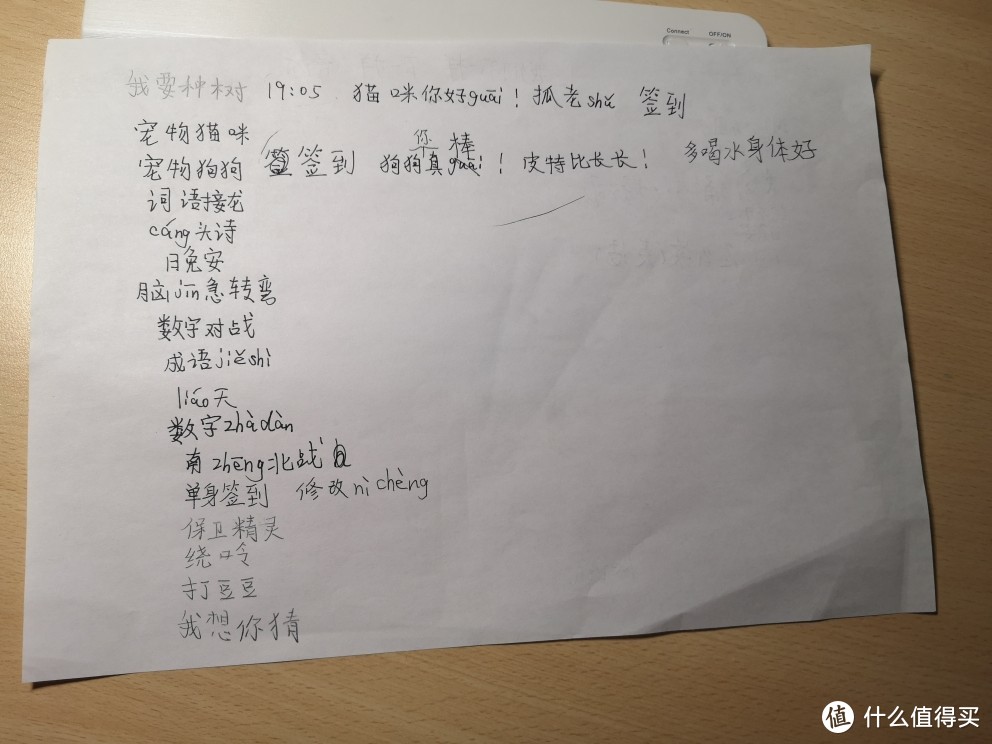 Connect OFF/ON
我要种树 19:05 猫咪你好guāi！抓老shǔ 签到
宠物猫咪
你 棒
宠物狗狗 签到 狗狗真guāi！皮特比长长！ 多喝水身体好
词语接龙
cáng头诗
日免安
脑jīn急转弯
数字对战
成语jiěshì
liáo天
数字zhàdàn
南zhēng北战
单身签到 修改nìchèng
保卫精灵
绕口令
打豆豆
我想你猜
值 什么值得买